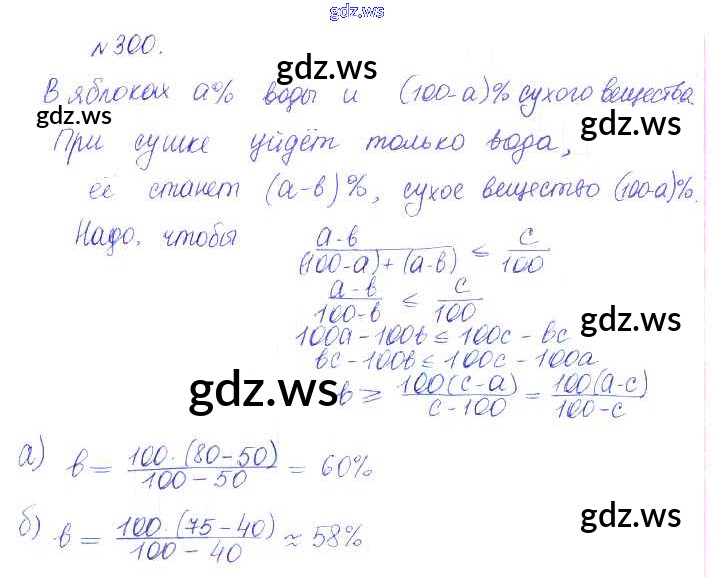 gdz.ws
№300.
gdz.ws
В яблоках a% воды и (100-a)% сухого вещества
gdz.ws
gdz.ws
При сушке уйдёт только вода,
её станет (a-b)%, сухое вещество (100-a)%.
Надо, чтобы (a-b)/((100-a)+(a-b)) ≤ c/100
(a-b)/(100-b) ≤ c/100
gdz.ws
100a-100b ≤ 100c-bc
bc-100b ≤ 100c-100a
gdz.ws
b ≥ 100(c-a)/(c-100) = 100(a-c)/(100-c)
а) b = 100·(80-50)/(100-50) = 60%
б) b = 100·(75-40)/(100-40) ≈ 58%
gdz.ws